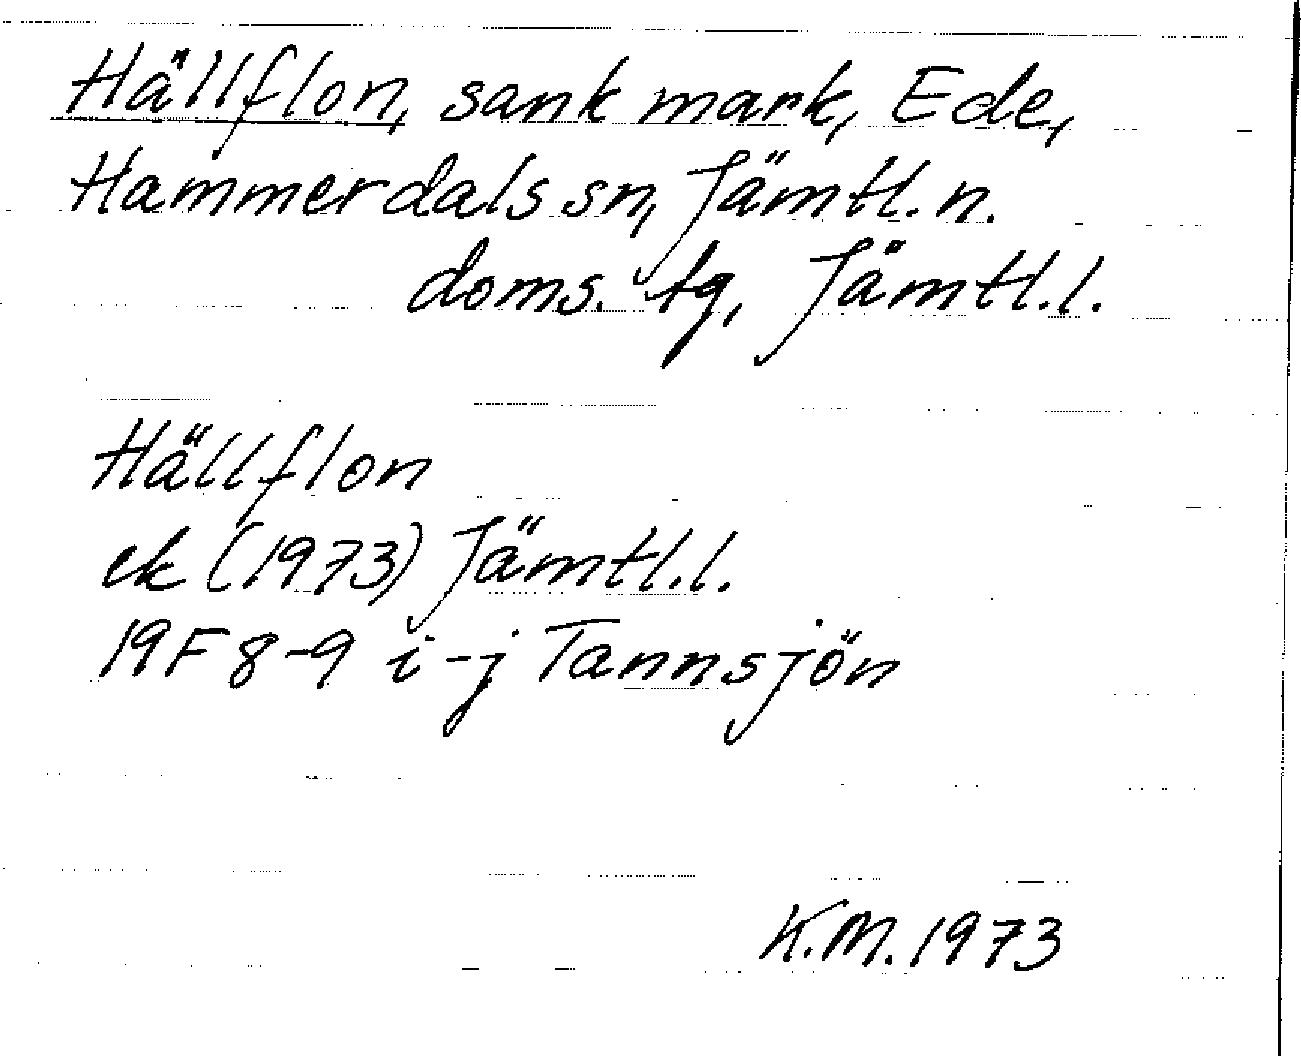 Hällflon, sank mark, Ede,
Hammerdals sn, Jämtl. n.
doms. tg, Jämtl. l.
Hällflon
ek (1973) Jämtl. l.
19F 8-9 i-j Tannsjön
K.M. 1973